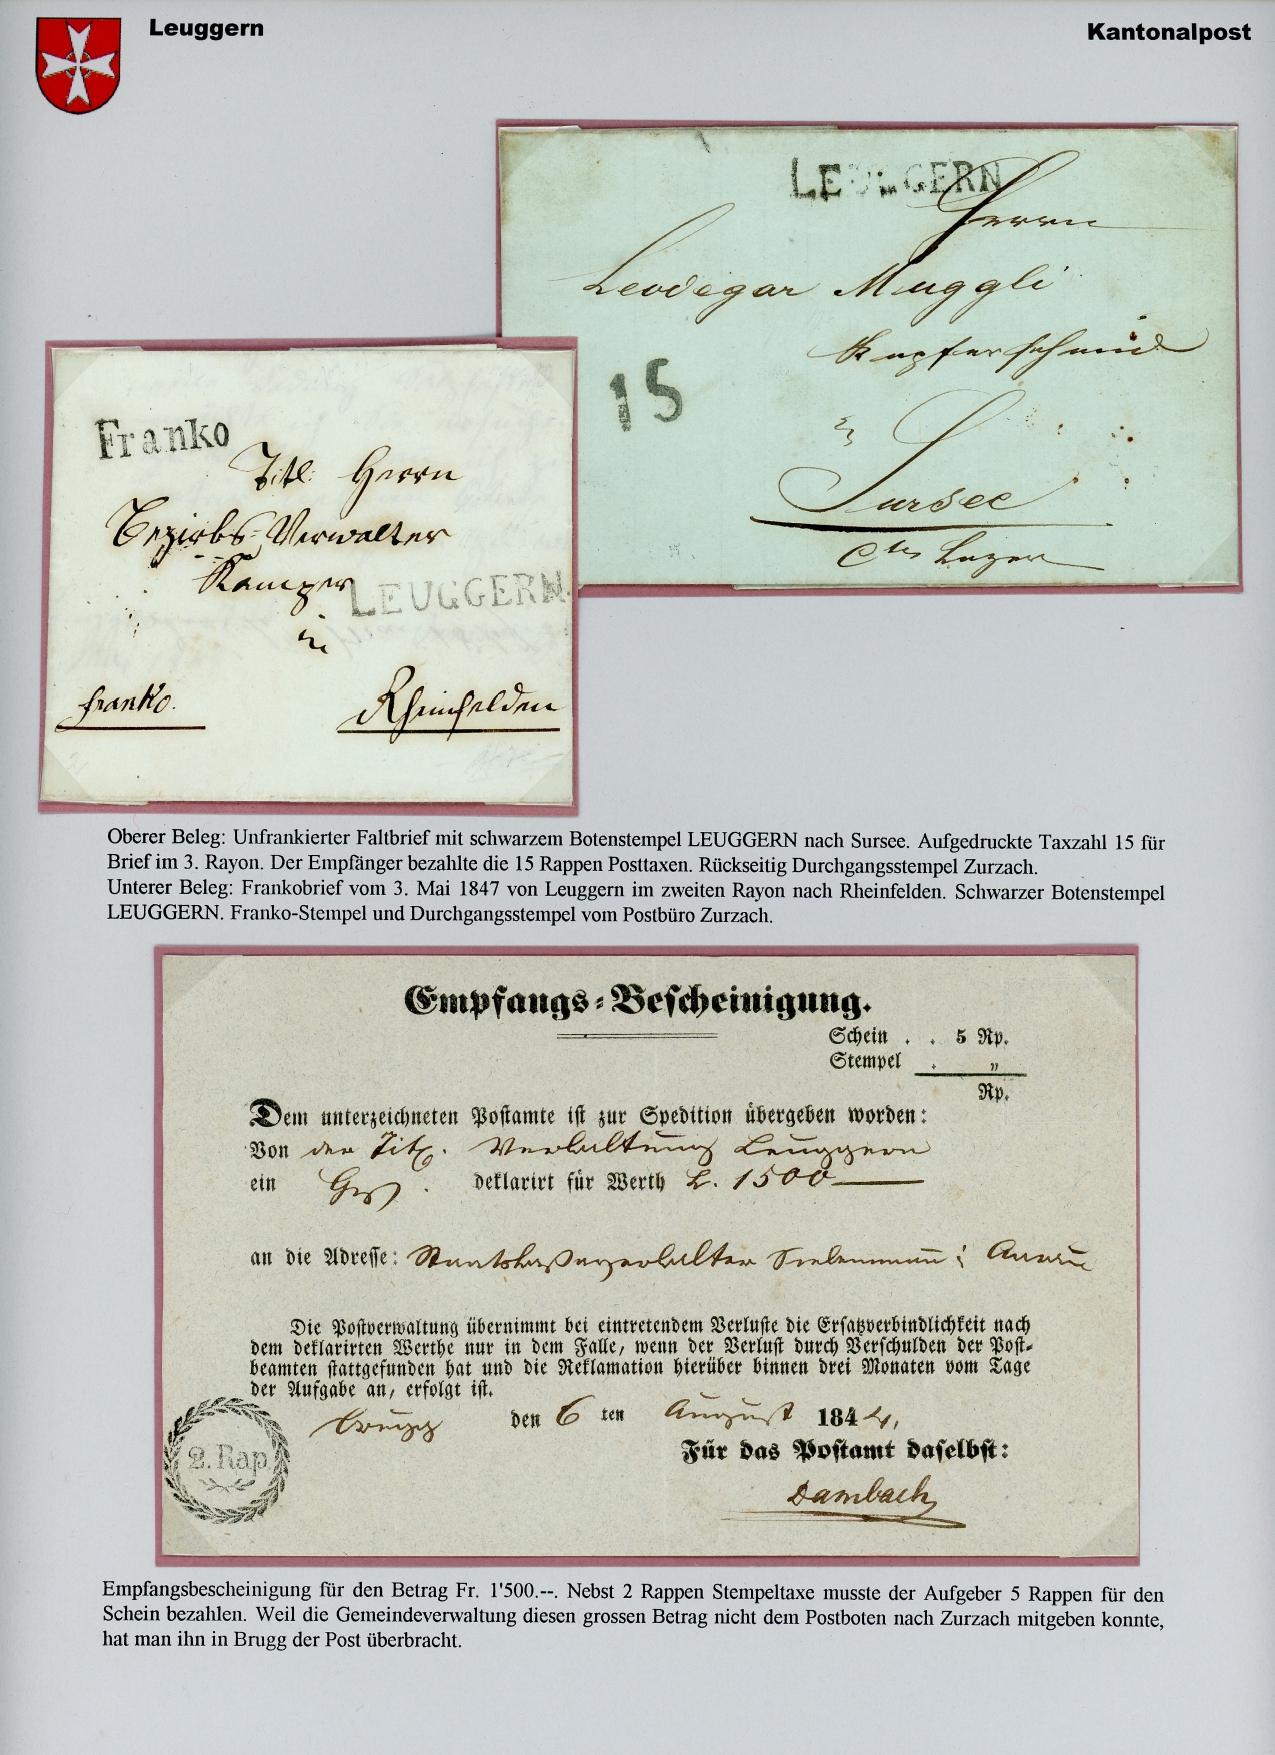 Leuggern
Kantonalpost
LEUGGERN
Herrn
Leodegar Muggli
Kupferschmid
in
15
Sursee
Ctn Luzern
Franko
Titl. Herrn
Bezirks-Verwalter
Kamper
LEUGGERN.
in
franko.
Rheinfelden
Oberer Beleg: Unfrankierter Faltbrief mit schwarzem Botenstempel LEUGGERN nach Sursee. Aufgedruckte Taxzahl 15 für
Brief im 3. Rayon. Der Empfänger bezahlte die 15 Rappen Posttaxen. Rückseitig Durchgangsstempel Zurzach.
Unterer Beleg: Frankobrief vom 3. Mai 1847 von Leuggern im zweiten Rayon nach Rheinfelden. Schwarzer Botenstempel
LEUGGERN. Franko-Stempel und Durchgangsstempel vom Postbüro Zurzach.
Empfangs-Bescheinigung.
Schein . . 5 Rp.
Stempel . "
Rp.
Dem unterzeichneten Postamte ist zur Spedition übergeben worden:
Von der Tit. Verwaltung Leuggern
ein deklarirt für Werth L. 1500
an die Adresse: Aarau
Die Postverwaltung übernimmt bei eintretendem Verluste die Ersatzverbindlichkeit nach
dem deklarirten Werthe nur in dem Falle, wenn der Verlust durch Verschulden der Post-
beamten stattgefunden hat und die Reklamation hierüber binnen drei Monaten vom Tage
der Aufgabe an, erfolgt ist.
Brugg den 6 ten August 1844.
2. Rap
Für das Postamt daselbst:
Dambach
Empfangsbescheinigung für den Betrag Fr. 1'500.--. Nebst 2 Rappen Stempeltaxe musste der Aufgeber 5 Rappen für den
Schein bezahlen. Weil die Gemeindeverwaltung diesen grossen Betrag nicht dem Postboten nach Zurzach mitgeben konnte,
hat man ihn in Brugg der Post überbracht.